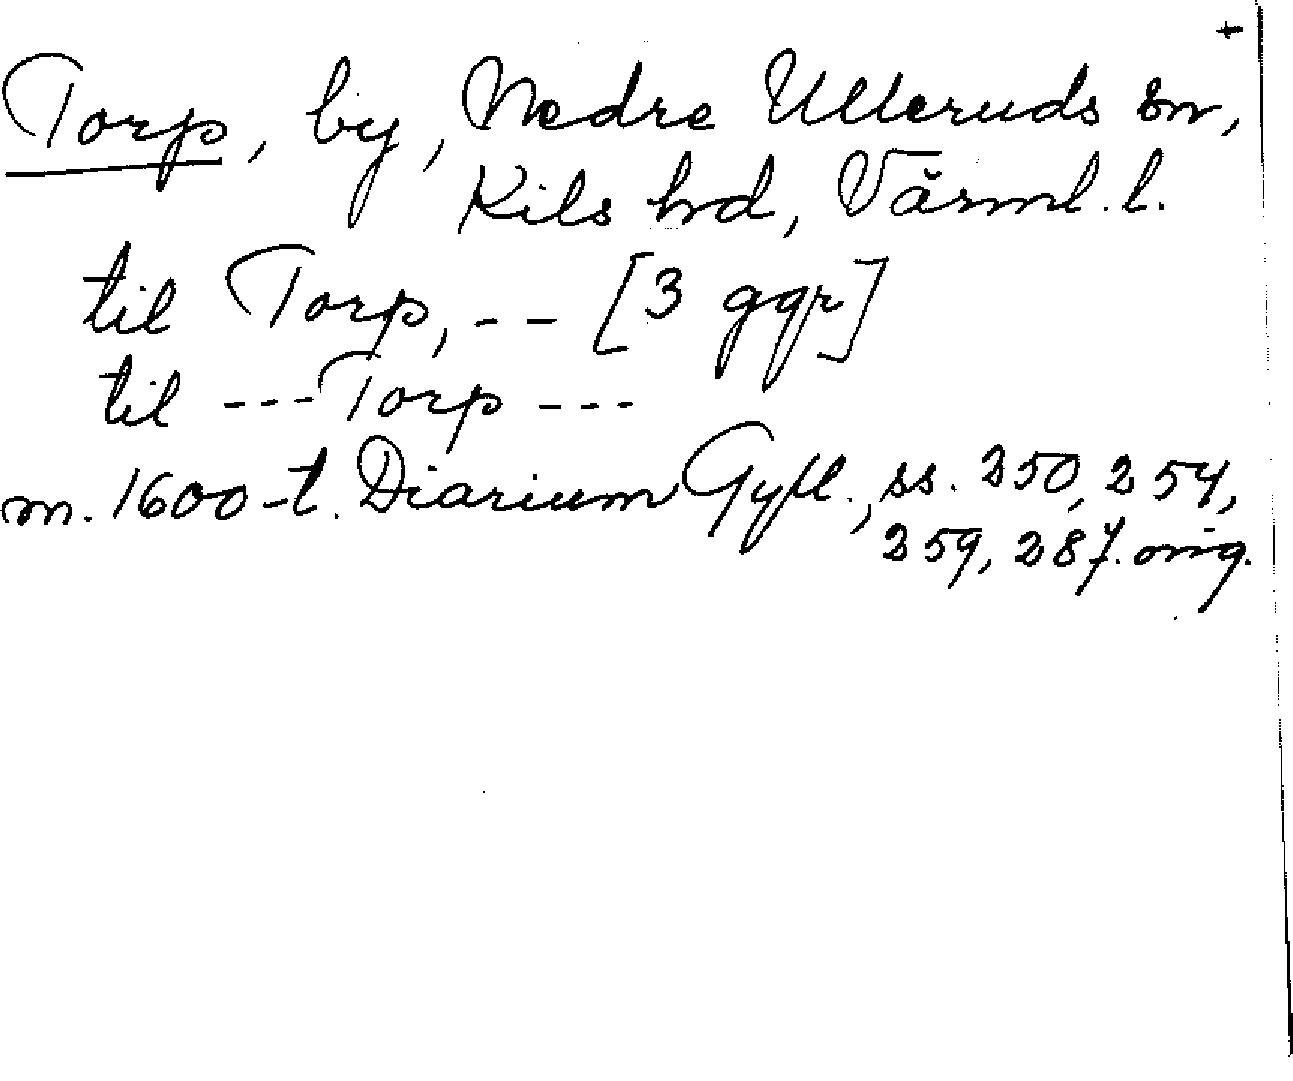 +
Torp, by, Nedre Ulleruds sn,
Kils hd, Värml. l.
til Torp, -- [3 ggr]
til --- Torp ---
m. 1600-t. Diarium Gyll., ss. 250, 254,
259, 287. orig.